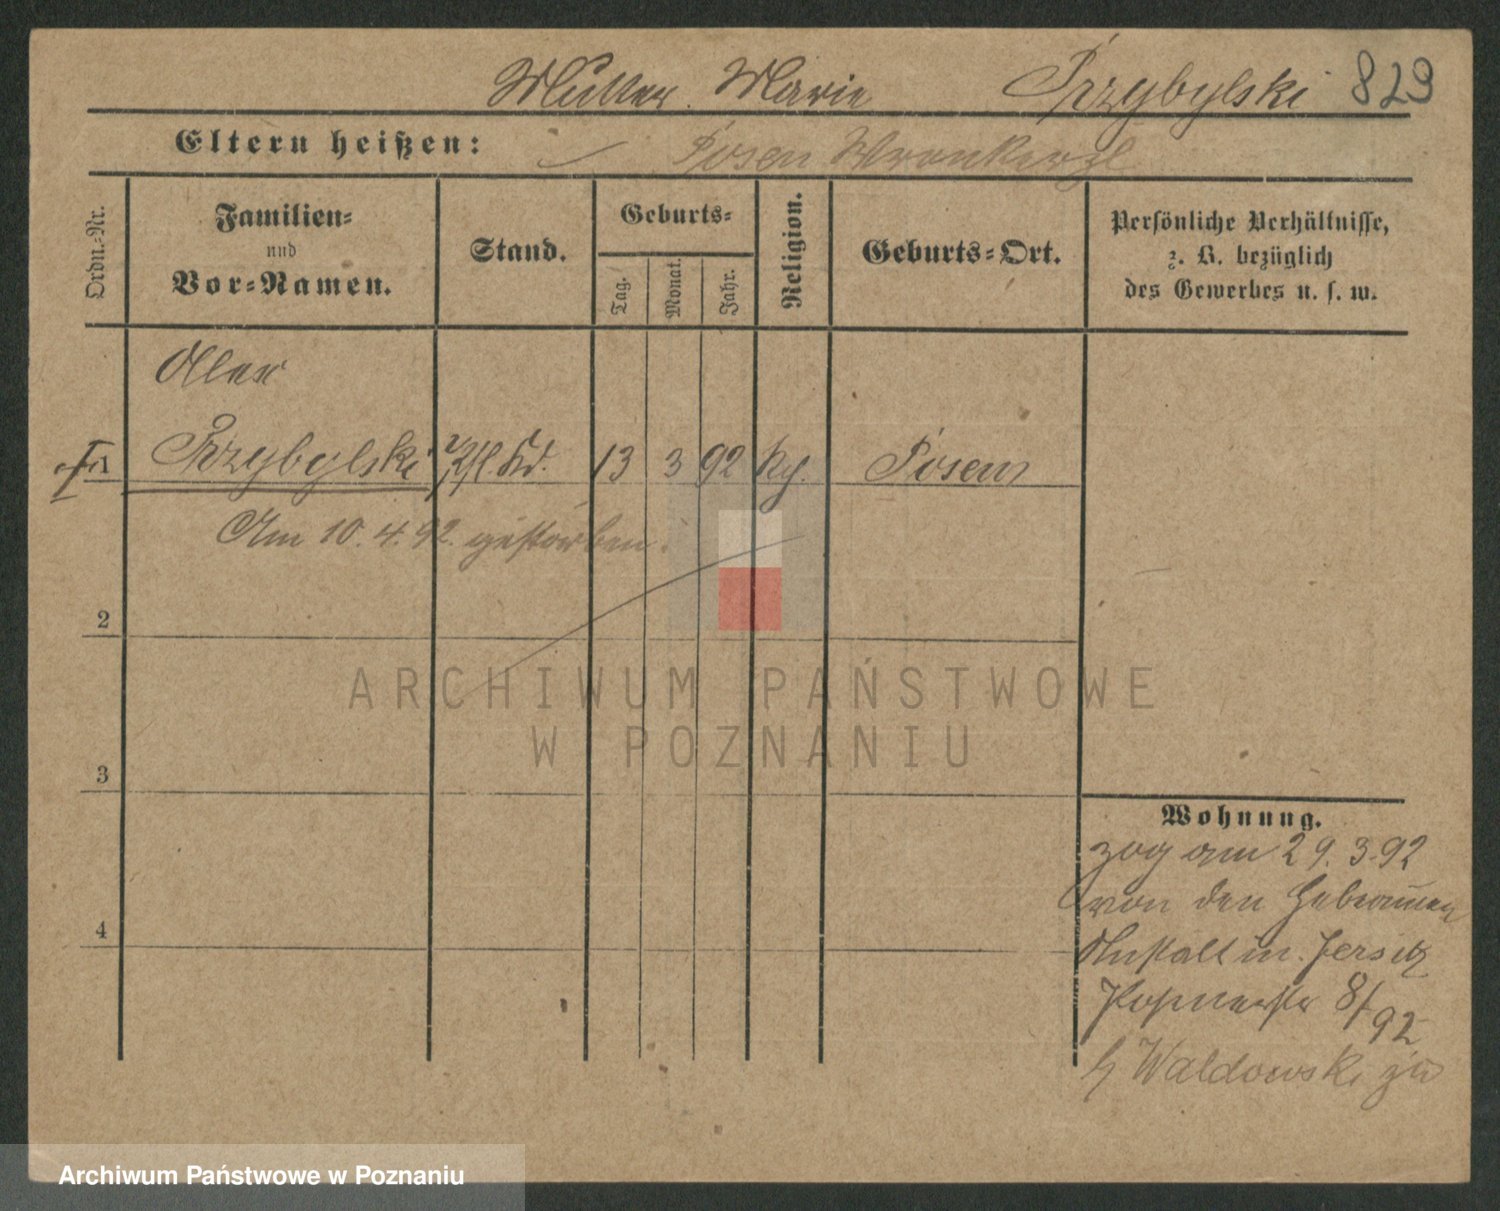 Mutter Marie Przybylski 823
Eltern heißen: Posen Wronkerpl
Ordn.-Nr.
Familien-
und
Vor-Namen.
Stand.
Geburts-
Tag.
Monat.
Jahr.
Religion.
Geburts-Ort.
Persönliche Verhältnisse,
z. B. bezüglich
des Gewerbes u. s. w.
1 Przybylski 13 3 92 Posen
Am 10.4.92. gestorben.
2
3
4
ARCHIWUM PAŃSTWOWE
W POZNANIU
Wohnung.
zog am 29.3.92
von den Hebammen
Anstalt in Jersitz
Posenerstr 8/92
Waldowski zu
Archiwum Państwowe w Poznaniu